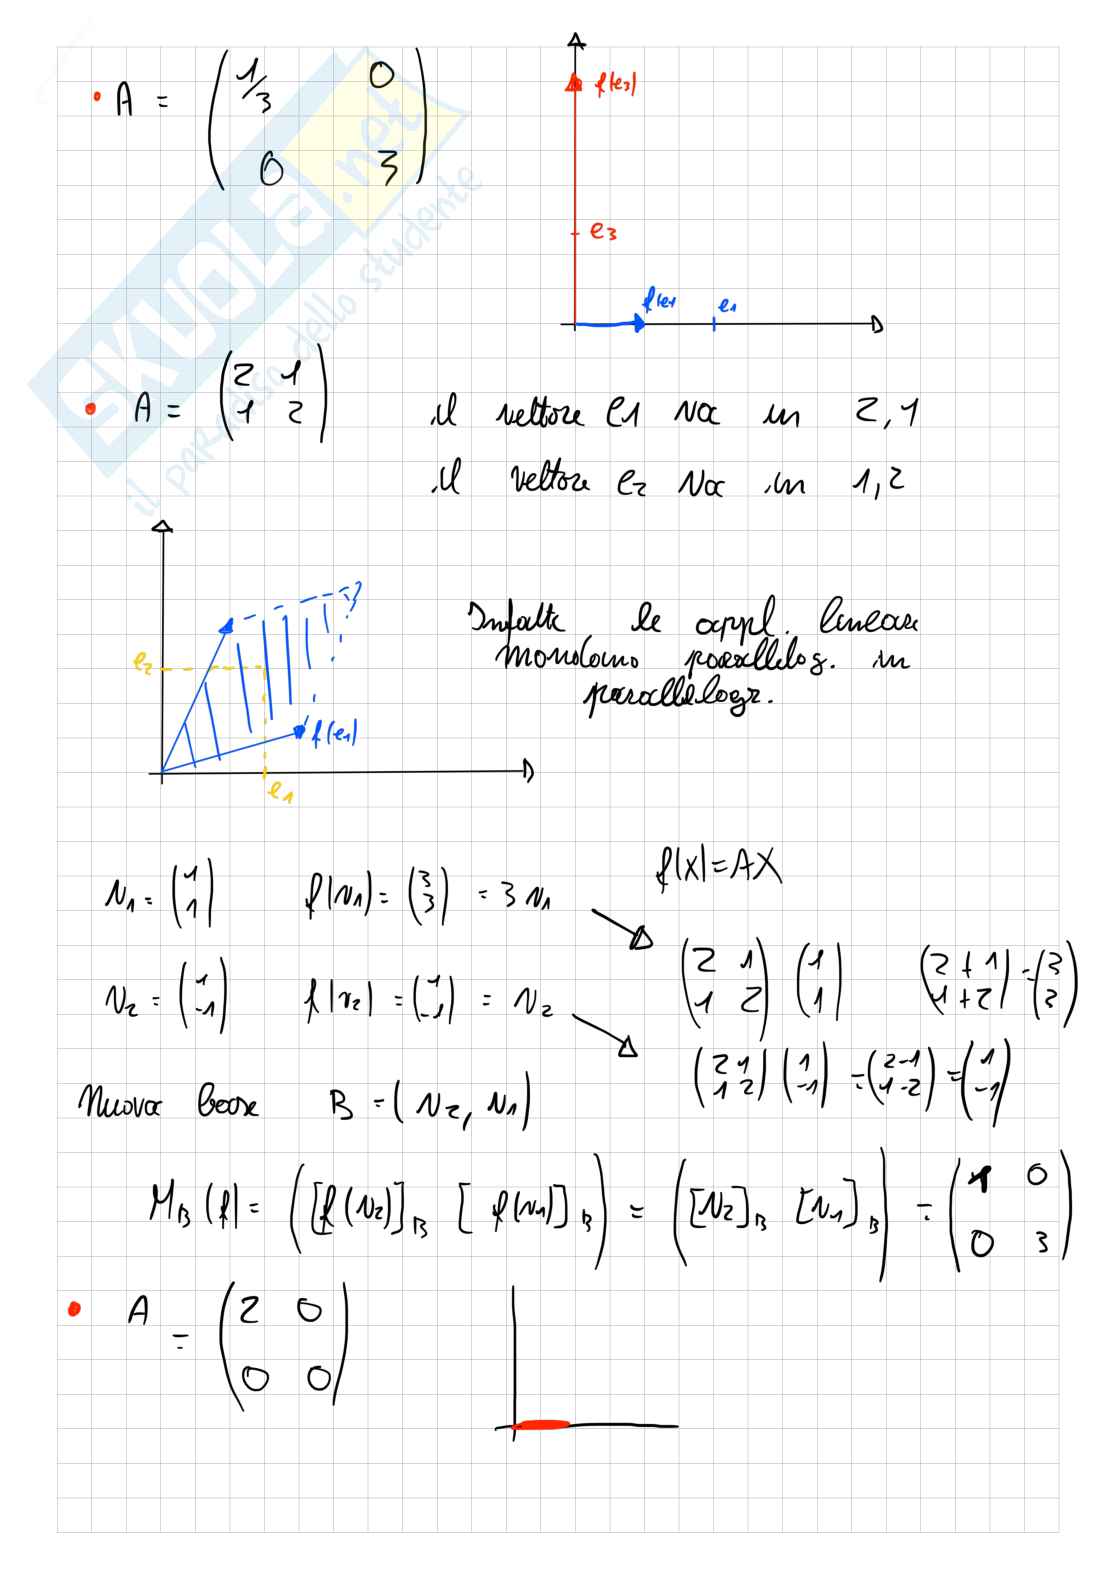 • A = (1/3 0
0 3)
f(e3)
e3
f(e1
e1
SKUOLA.net
il paradiso dello studente
• A = (2 1
1 2)
il vettore e1 va in 2,1
il vettore e2 va in 1,2
e2
f(e1)
e1
Infatti le appl. lineari
mandano parallelog. in
parallelogr.
f(x) = AX
v1 = (1 1) f(v1) = (3 3) = 3 v1
(2 1 1 2) (1 1) (2+1 1+2) = (3 3)
v2 = (1 -1) f(v2) = (1 -1) = v2
(2 1 1 2) (1 -1) = (2-1 1-2) = (1 -1)
Nuova base B = (v2, v1)
MB (f) = ([f(v2)]B [f(v1)]B) = ([v2]B [v1]B) = (1 0
0 3)
• A = (2 0
0 0)